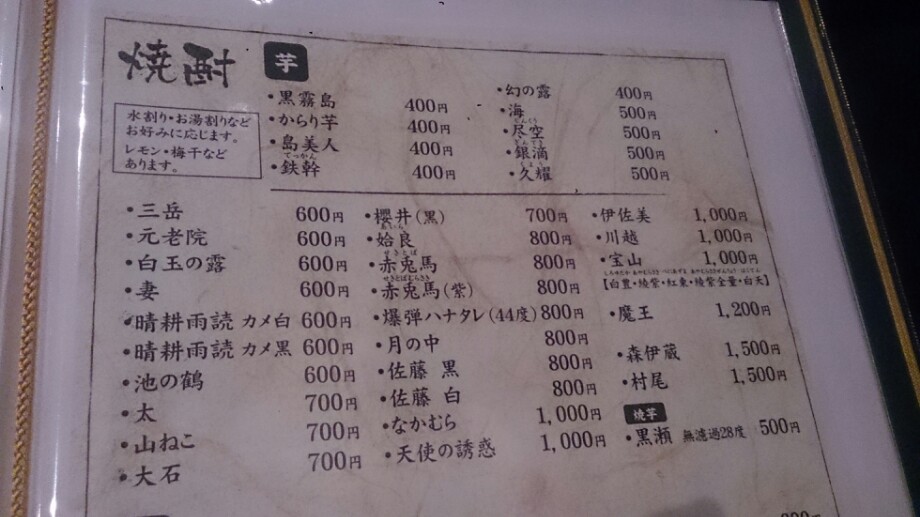 焼酎 芋
水割り・お湯割りなど
お好みに応じます。
レモン・梅干など
あります。
・黒霧島 400円
・からり芋 400円
・島美人 400円
てっかん
・鉄幹 400円
・幻の露 400円
・海 500円
どんくう
・尽空 500円
ぎんてき
・銀滴 500円
・久耀 500円
・三岳 600円
・元老院 600円
・白玉の露 600円
・妻 600円
・晴耕雨読 カメ白 600円
・晴耕雨読 カメ黒 600円
・池の鶴 600円
・太 700円
・山ねこ 700円
・大石 700円
・櫻井(黒) 700円
あいら
・姶良 800円
せきとば
・赤兎馬 800円
せきとばむらさき
・赤兎馬(紫) 800円
・爆弾ハナタレ(44度) 800円
・月の中 800円
・佐藤 黒 800円
・佐藤 白 800円
・なかむら 1,000円
・天使の誘惑 1,000円
・伊佐美 1,000円
・川越 1,000円
・宝山 1,000円
【白豊・綾紫・紅東・綾紫全量・白天】
・魔王 1,200円
・森伊蔵 1,500円
・村尾 1,500円
焼芋
・黒瀬 無濾過28度 500円